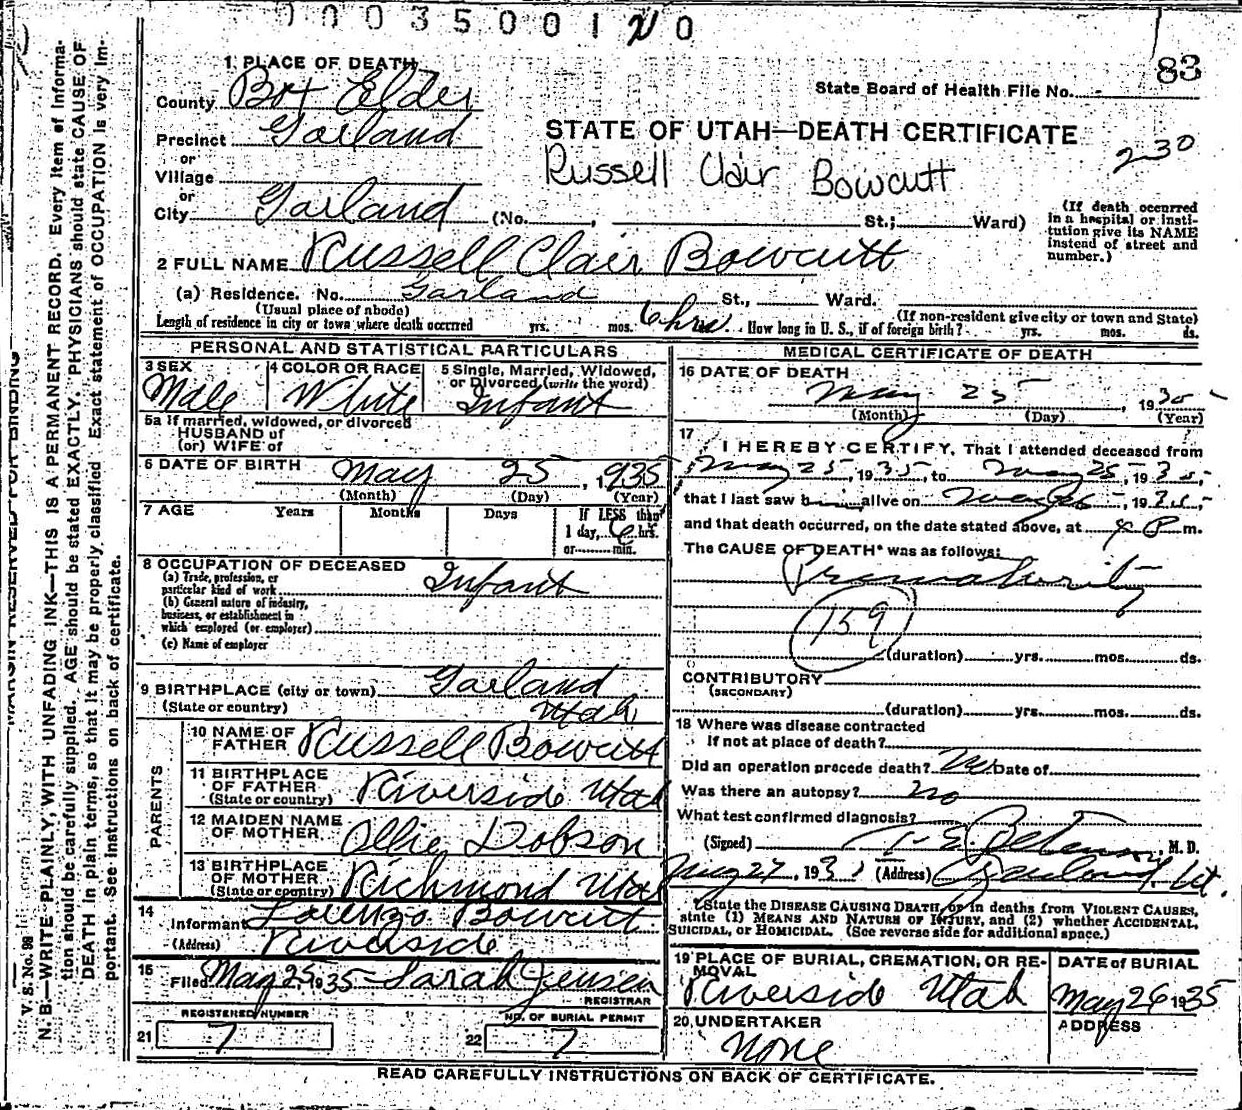 0003500120
83
1 PLACE OF DEATH
County Box Elder
State Board of Health File No.
Precinct Garland
or
Village
or
City Garland (No. , St.; Ward)
STATE OF UTAH—DEATH CERTIFICATE
230
Russell Clair Bowcutt
(If death occurred in a hospital or institution give its NAME instead of street and number.)
2 FULL NAME Russell Clair Bowcutt
(a) Residence. No. Garland St., Ward.
(Usual place of abode) (If non-resident give city or town and State)
Length of residence in city or town where death occurred yrs. mos. 6 hrs. How long in U. S., if of foreign birth? yrs. mos. ds.
PERSONAL AND STATISTICAL PARTICULARS
3 SEX Male
4 COLOR OR RACE White
5 Single, Married, Widowed, or Divorced (write the word) Infant
5a If married, widowed, or divorced
HUSBAND of
(or) WIFE of
6 DATE OF BIRTH May 25, 1935
(Month) (Day) (Year)
7 AGE Years Months Days If LESS than
1 day, 6 hrs.
or min.
8 OCCUPATION OF DECEASED Infant
(a) Trade, profession, or
particular kind of work
(b) General nature of industry,
business, or establishment in
which employed (or employer)
(c) Name of employer
9 BIRTHPLACE (city or town) Garland
(State or country) Utah
PARENTS
10 NAME OF FATHER Russell Bowcutt
11 BIRTHPLACE OF FATHER (State or country) Riverside Utah
12 MAIDEN NAME OF MOTHER Ollie Dobson
13 BIRTHPLACE OF MOTHER (State or country) Richmond Utah
14 Informant Lorenzo Bowcutt
(Address) Riverside
15 Filed May 25, 1935 Sarah Jensen
REGISTRAR
REGISTERED NUMBER
21 7
NO. OF BURIAL PERMIT
22 7
MEDICAL CERTIFICATE OF DEATH
16 DATE OF DEATH
May 25, 1935
(Month) (Day) (Year)
17 I HEREBY CERTIFY, That I attended deceased from
May 25, 1935, to May 25, 1935,
that I last saw h alive on May 25, 1935,
and that death occurred, on the date stated above, at P m.
The CAUSE OF DEATH* was as follows:
Prematurity
159
(duration) yrs. mos. ds.
CONTRIBUTORY
(SECONDARY)
(duration) yrs. mos. ds.
18 Where was disease contracted
If not at place of death?
Did an operation precede death? No Date of
Was there an autopsy? No
What test confirmed diagnosis?
(Signed) , M. D.
May 27, 193 (Address) Garland, Ut.
*State the DISEASE CAUSING DEATH, or in deaths from VIOLENT CAUSES,
state (1) MEANS AND NATURE OF INJURY, and (2) whether ACCIDENTAL,
SUICIDAL, or HOMICIDAL. (See reverse side for additional space.)
19 PLACE OF BURIAL, CREMATION, OR REMOVAL
Riverside Utah
DATE of BURIAL
May 26 1935
20 UNDERTAKER
None
ADDRESS
READ CAREFULLY INSTRUCTIONS ON BACK OF CERTIFICATE.
MARGIN RESERVED FOR BINDING
V. S. No. 98
N. B.—WRITE PLAINLY, WITH UNFADING INK—THIS IS A PERMANENT RECORD. Every item of informa-
tion should be carefully supplied. AGE should be stated EXACTLY. PHYSICIANS should state CAUSE OF
DEATH in plain terms, so that it may be properly classified. Exact statement of OCCUPATION is very im-
portant. See instructions on back of certificate.